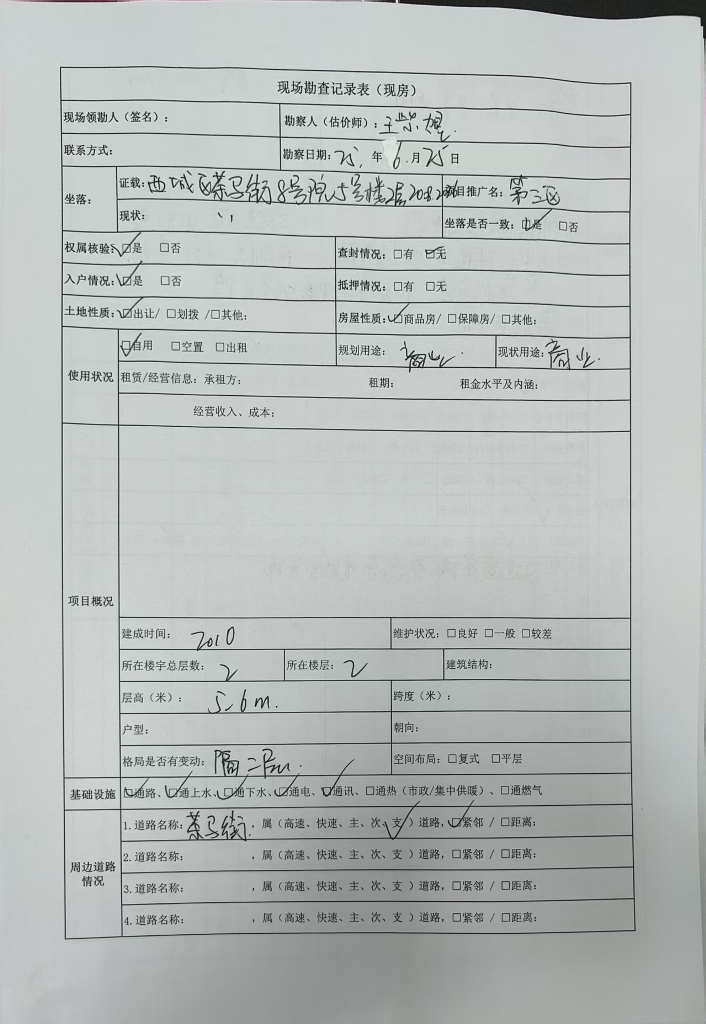 现场勘查记录表（现房）
现场领勘人（签名）： 勘察人（估价师）：王
联系方式： 勘察日期：25. 年 6 .月 25 日
坐落： 证载：西城区菜马街8号院5号楼2层 项目推广名：第三区
现状：〃 坐落是否一致：☑是 □否
权属核验：☑是 □否 查封情况：□有 ☑无
入户情况：☑是 □否 抵押情况：□有 □无
土地性质：☑出让/ □划拨 /□其他： 房屋性质：☑商品房/ □保障房/ □其他：
使用状况 ☑自用 □空置 □出租 规划用途：商业 现状用途：商业.
租赁/经营信息：承租方： 租期： 租金水平及内涵：
经营收入、成本：
项目概况
建成时间：2010 维护状况：□良好 □一般 □较差
所在楼宇总层数：2 所在楼层：2 建筑结构：
层高（米）：5-6m. 跨度（米）：
户型： 朝向：
格局是否有变动：隔二层. 空间布局：□复式 □平层
基础设施 ☑通路、☑通上水、☑通下水、☑通电、☑通讯、□通热（市政/集中供暖）、□通燃气
周边道路情况 1.道路名称：菜马街，属（高速、快速、主、次、支✓）道路，☑紧邻 / □距离：
2.道路名称： ，属（高速、快速、主、次、支 ）道路，□紧邻 / □距离：
3.道路名称： ，属（高速、快速、主、次、支 ）道路，□紧邻 / □距离：
4.道路名称： ，属（高速、快速、主、次、支 ）道路，□紧邻 / □距离：